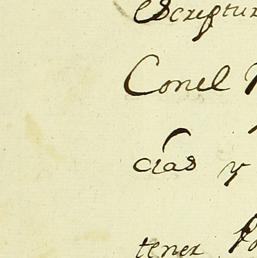 Escriptur
Conel
cias y
tener